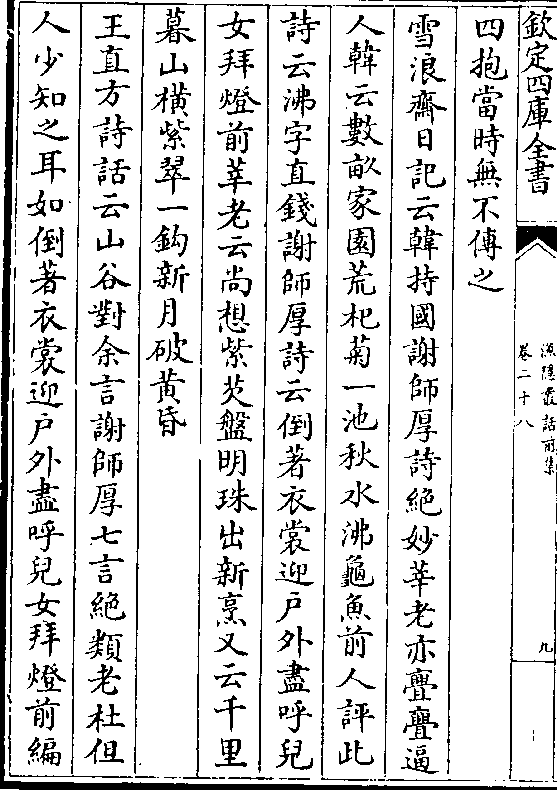 欽定四庫全書
漁隱叢話前集
卷二十八
九
四抱當時無不傳之
雪浪齋日記云韓持國謝師厚詩絶妙莘老亦亹亹逼
人韓云數畝家園荒杞菊一池秋水沸龜魚前人評此
詩云沸字直錢謝師厚詩云倒著衣裳迎户外盡呼兒
女拜燈前莘老云尚想紫芡盤明珠出新烹又云千里
暮山橫紫翠一鈎新月破黄昏
王直方詩話云山谷對余言謝師厚七言絶類老杜但
人少知之耳如倒著衣裳迎户外盡呼兒女拜燈前編